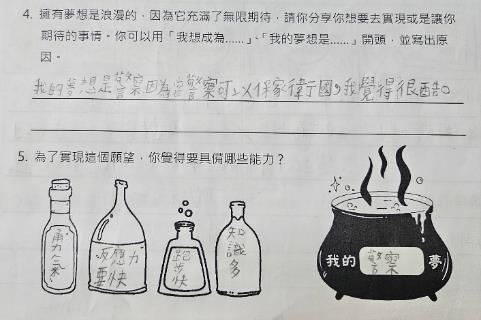 4. 擁有夢想是浪漫的，因為它充滿了無限期待，請你分享你想要去實現或是讓你
期待的事情。你可以用「我想成為......」、「我的夢想是......」開頭，並寫出原
因。
我的夢想是警察因為當警察可以保家衛國，我覺得很酷。
5. 為了實現這個願望，你覺得要具備哪些能力？
勇氣
反應力要快
跑步快
知識多
我的 警察 夢